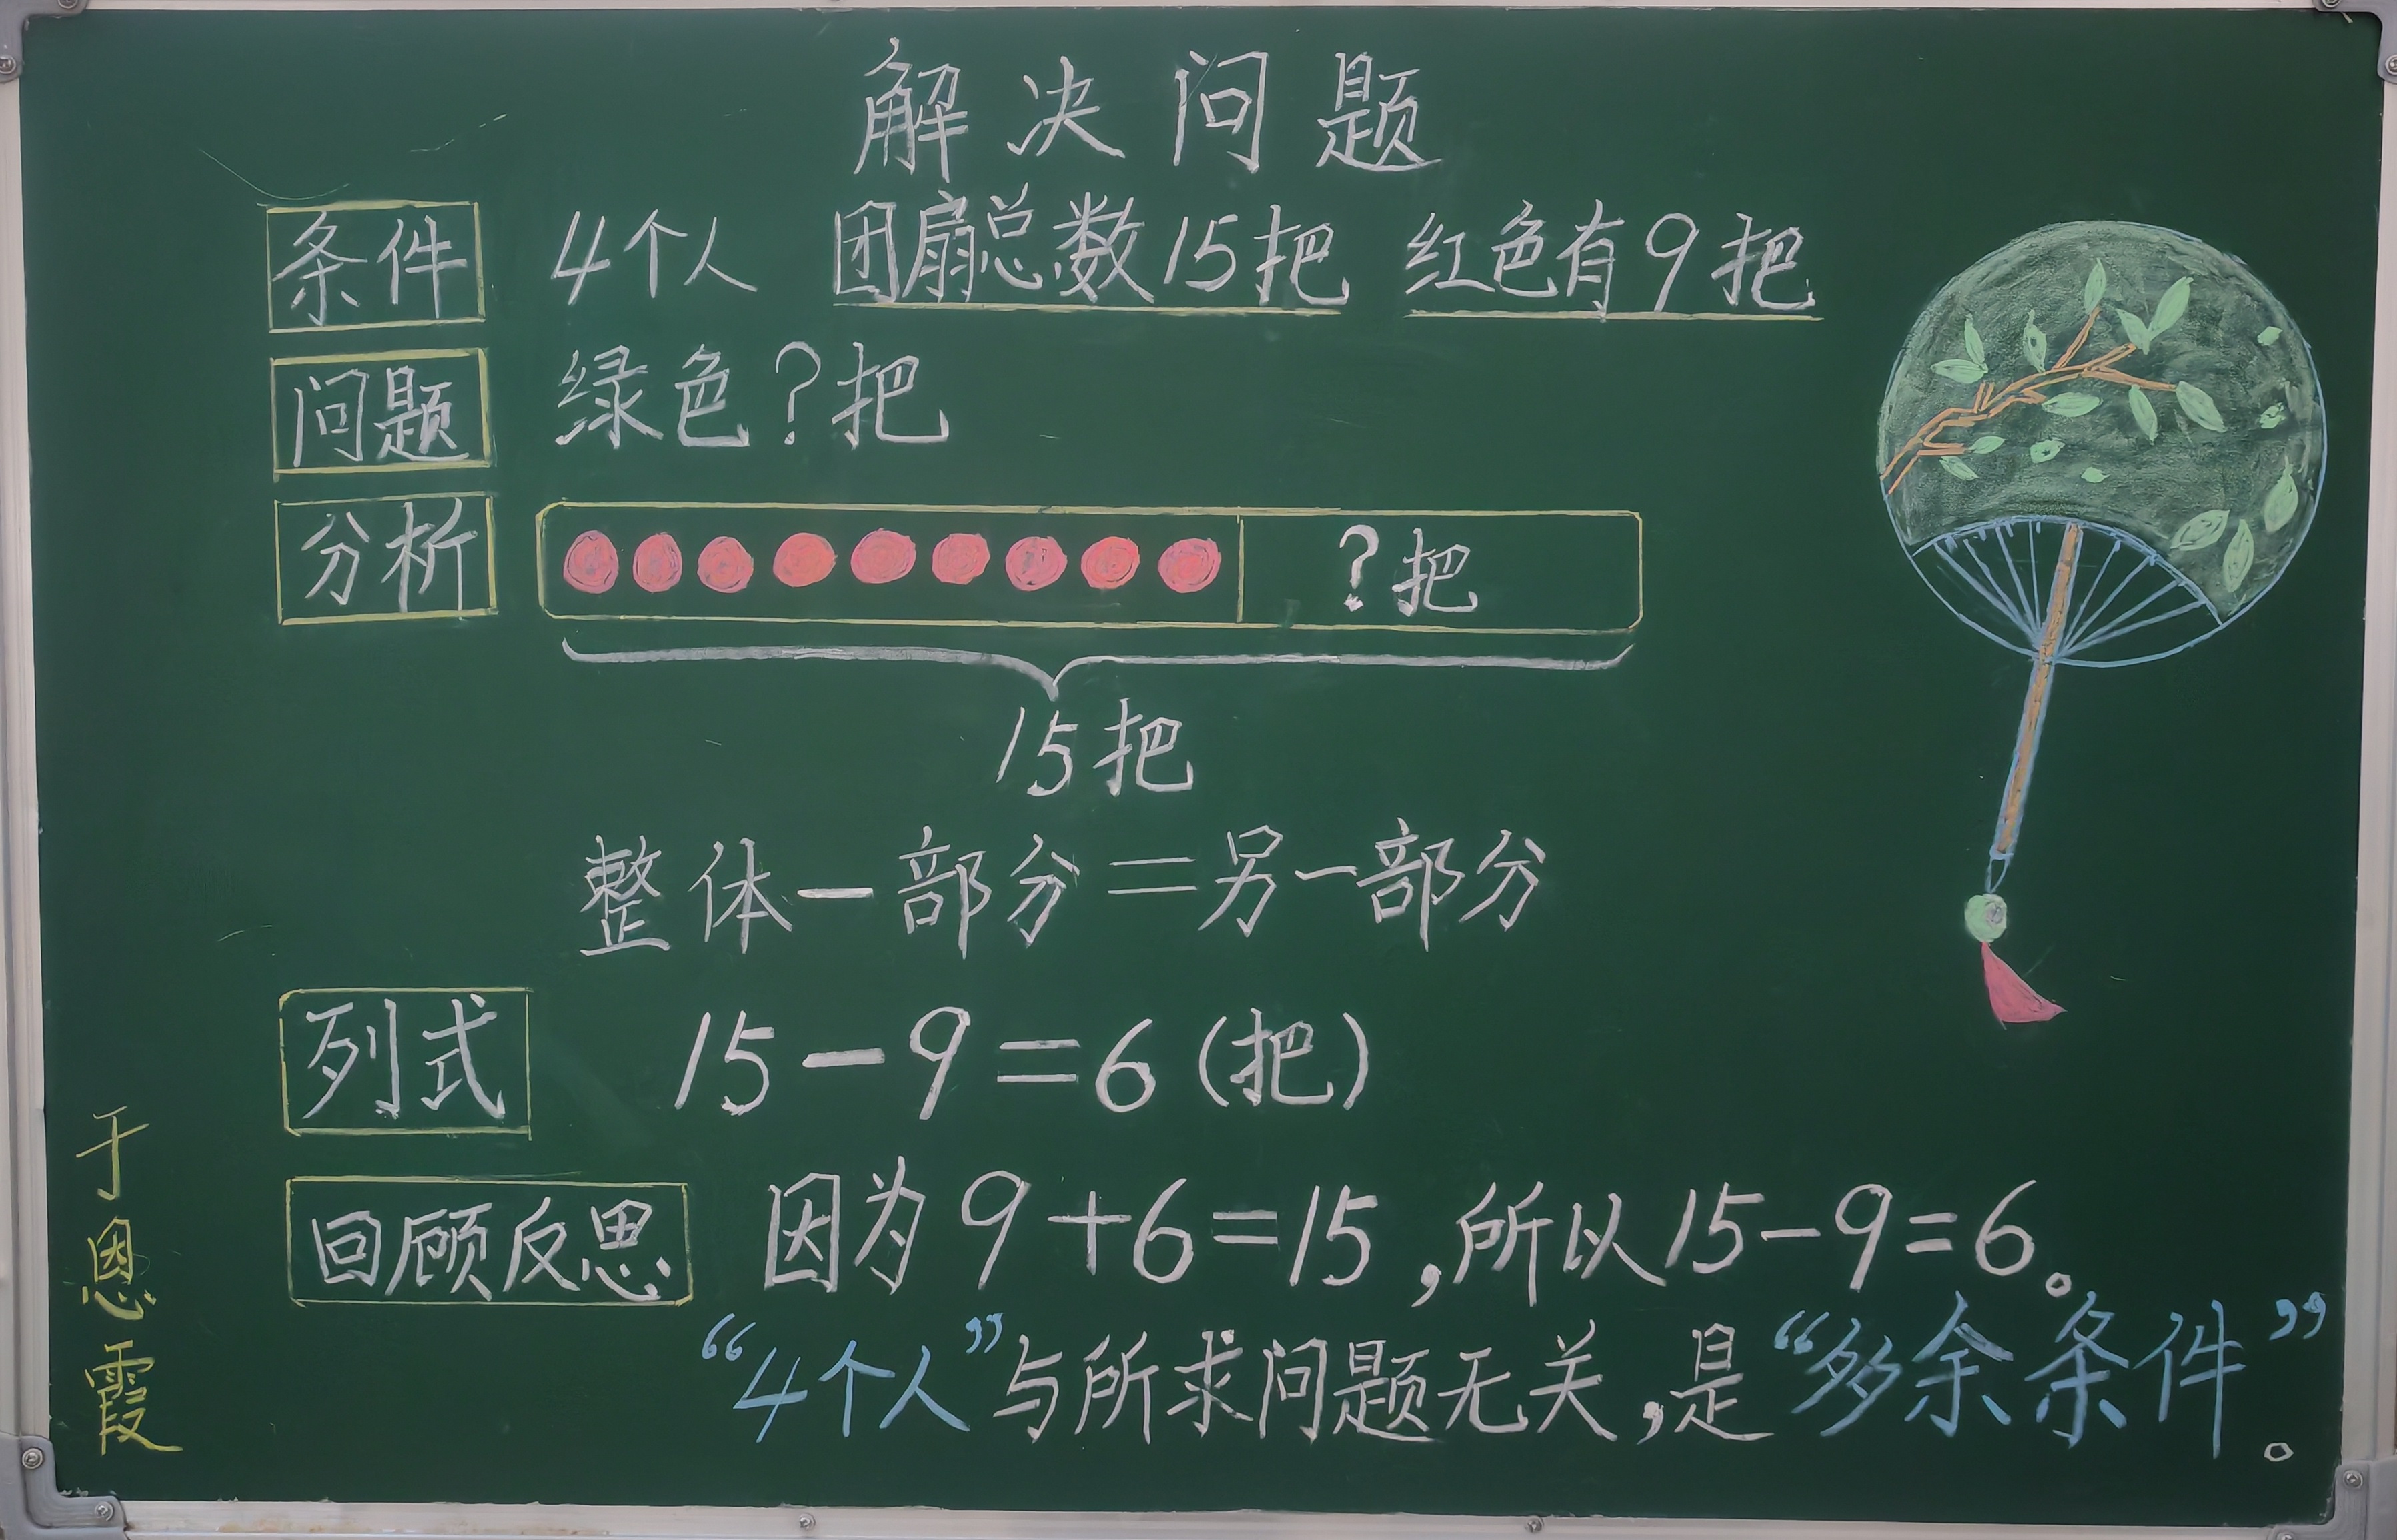 解决问题
条件 4个人 团扇总数15把 红色有9把
问题 绿色?把
分析 ?把
15把
整体-部分=另一部分
列式 15-9=6(把)
回顾反思 因为9+6=15,所以15-9=6。
“4个人”与所求问题无关,是“多余条件”。
于恩霞